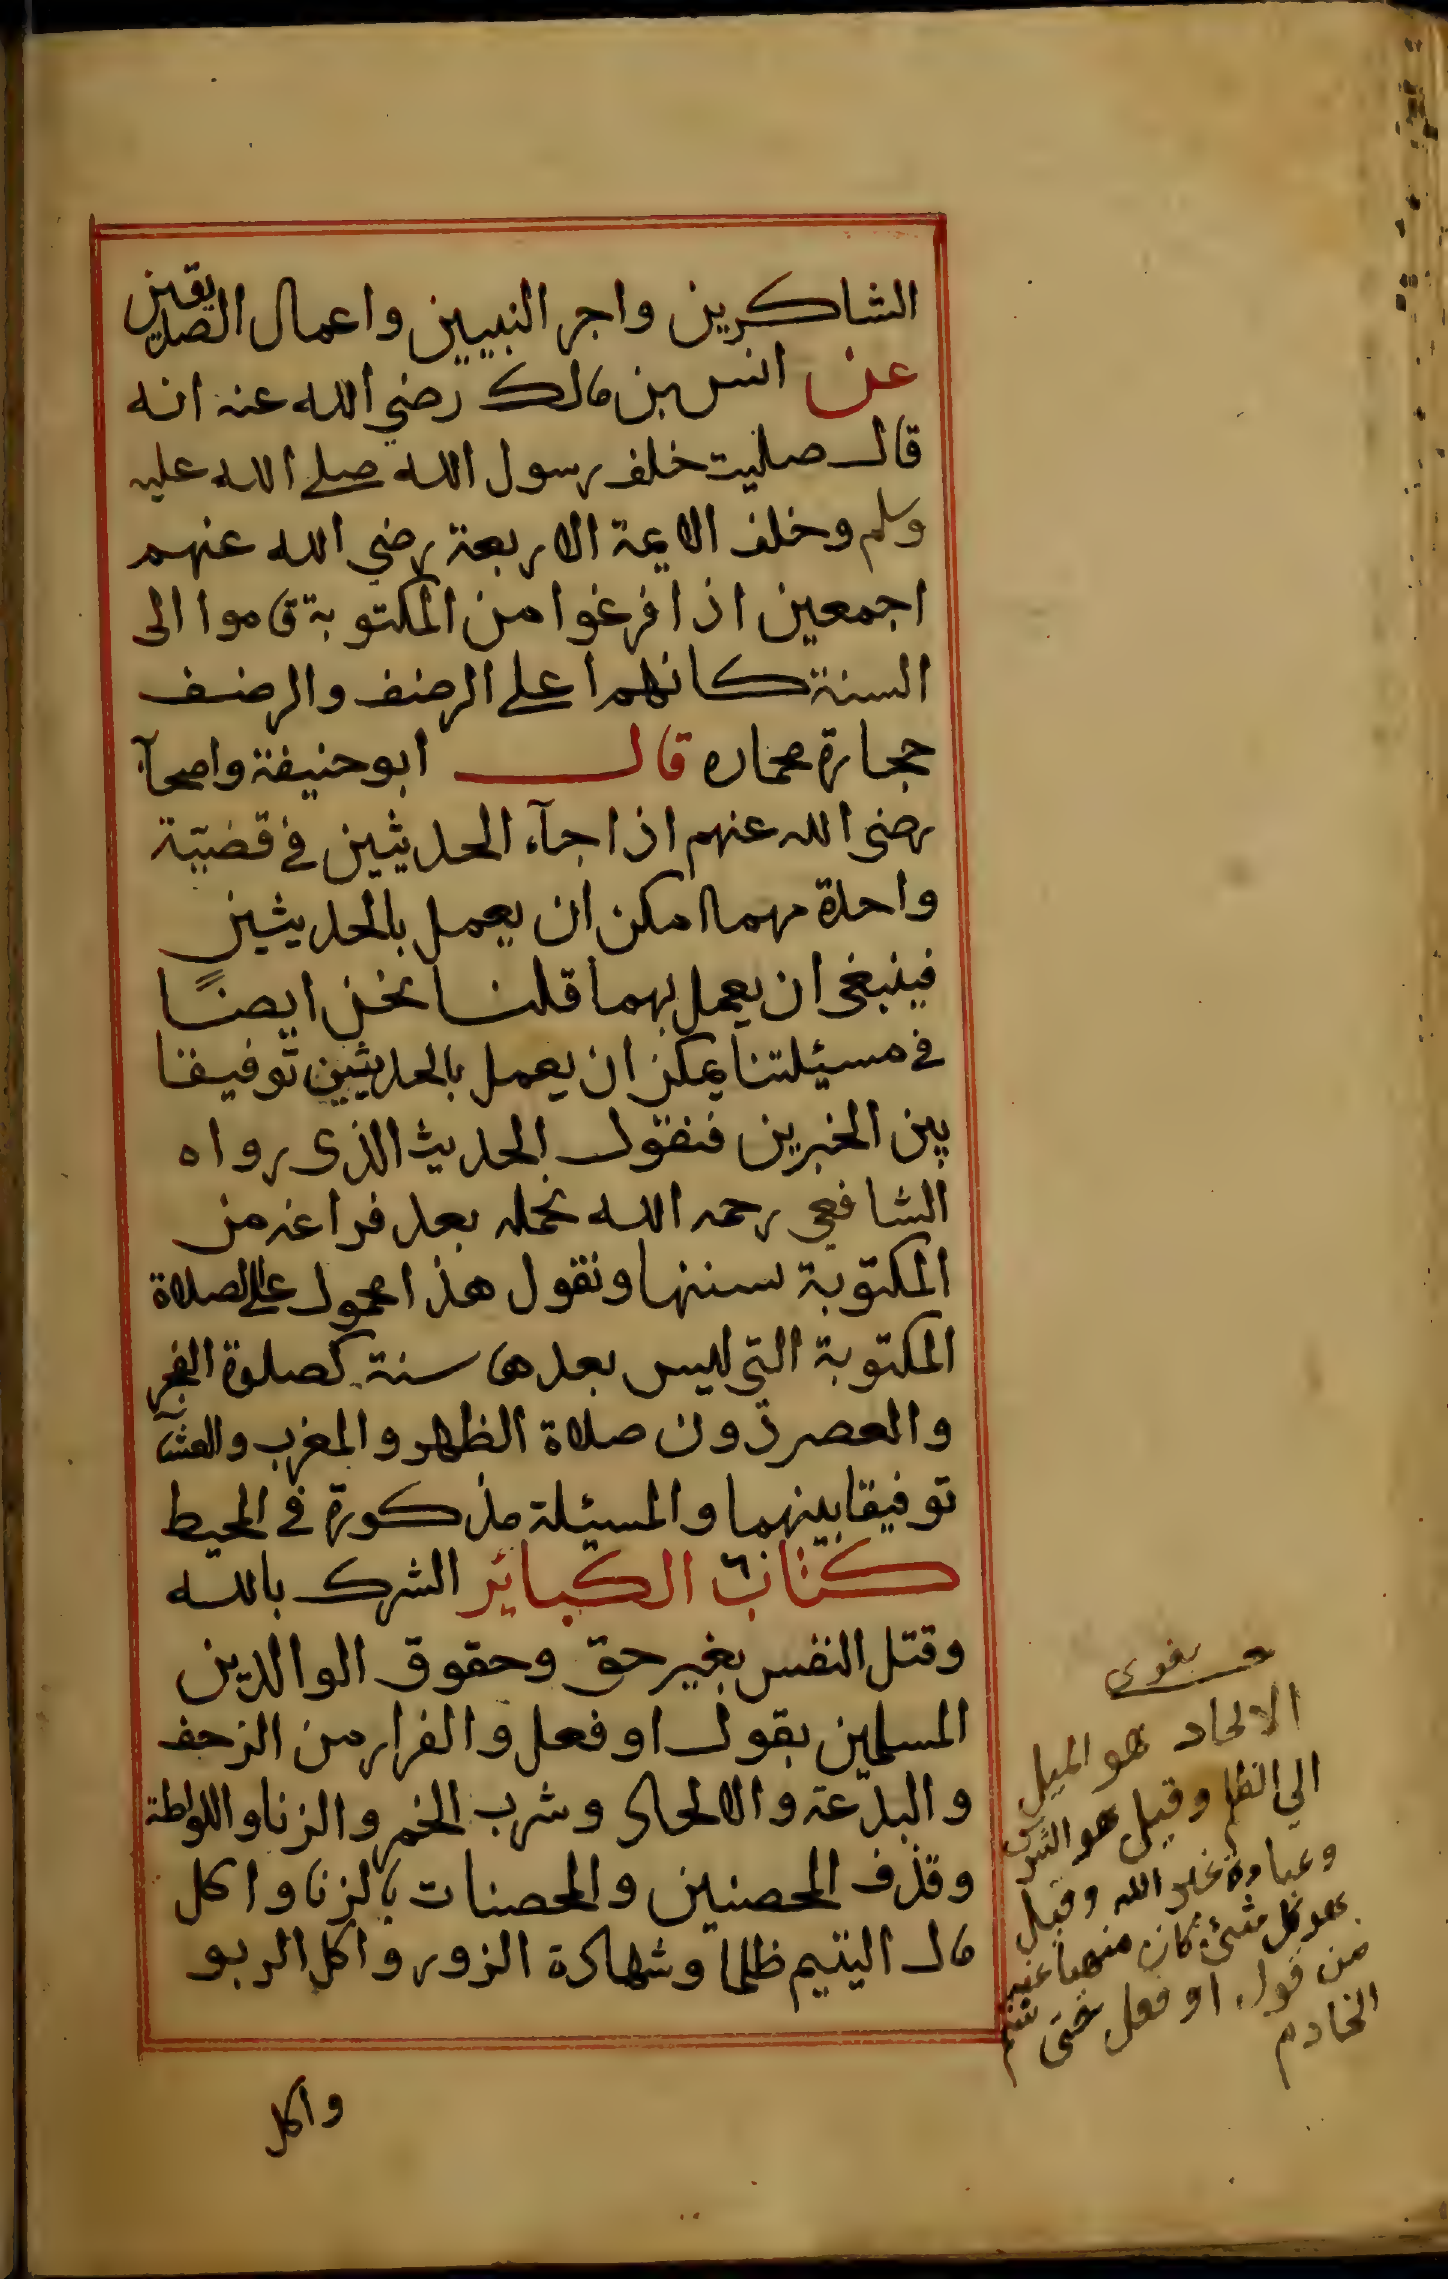 الشاكرين واجر النبيين واعمال الصديقين
عن انس بن مالك رضي الله عنه انه
قال صليت خلف رسول الله صلى الله عليه
وسلم وخلف الايمة الاربعة رضي الله عنهم
اجمعين اذا فرغوا من المكتوبة قاموا الى
السنة كانهم على الرضف والرضف
حجارة محماه قال ابو حنيفة واصحا
رضى الله عنهم اذا جآء الحديثين في قضيّة
واحدة مهما امكن ان يعمل بالحديثين
فينبغى ان يعمل بهما قلنا نحن ايضًا
في مسيئلتنا يمكن ان يعمل بالحديثين توفيقا
بين الخبرين فنقول الحديث الذى رواه
الشافعي رحمه الله نحمله بعد فراغه من
المكتوبة سننها ونقول هذا محمول على الصلاة
المكتوبة التى ليس بعدها سنة كصلوة الفجر
والعصر دون صلاة الظهر والمغرب والعشآ
توفيقا بينهما والمسيئلة مذكورة في المحيط
كتاب الكبائر الشرك بالله
وقتل النفس بغير حق وحقوق الوالدين
المسلمين بقول او فعل والفرار من الزحف
والبدعة والالحاد وشرب الخمر والزنا واللواطة
وقذف المحصنين والمحصنات بالزنا واكل
مال اليتيم ظلما وشهادة الزور واكل الربو
واكل
بغوى
الالحاد هو الميل
الى الظلم وقيل هو الشرك
وعبادة غير الله وقيل
هو كل شئ كان منهيا عنه
من قول او فعل حتى شتم
الخادم